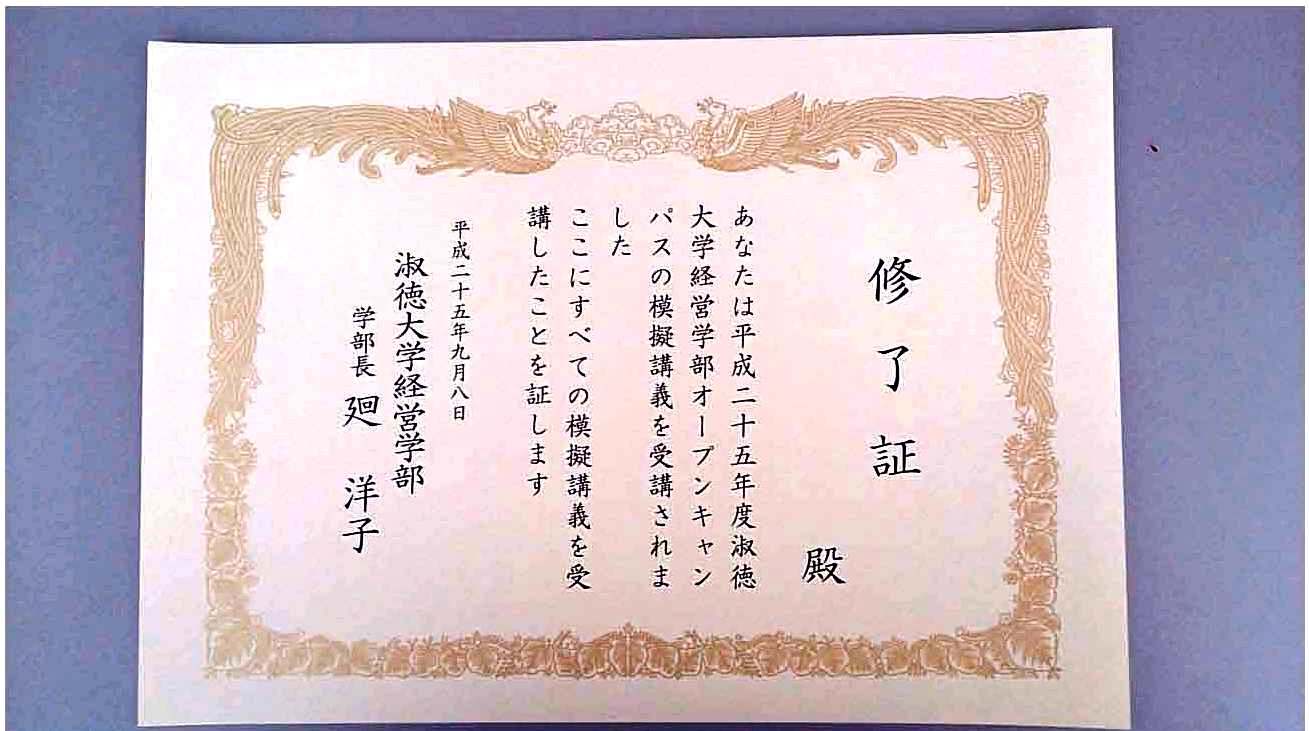 修了証
殿
あなたは平成二十五年度淑徳
大学経営学部オープンキャン
パスの模擬講義を受講されま
した
ここにすべての模擬講義を受
講したことを証します
平成二十五年九月八日
淑徳大学経営学部
学部長 廻 洋子